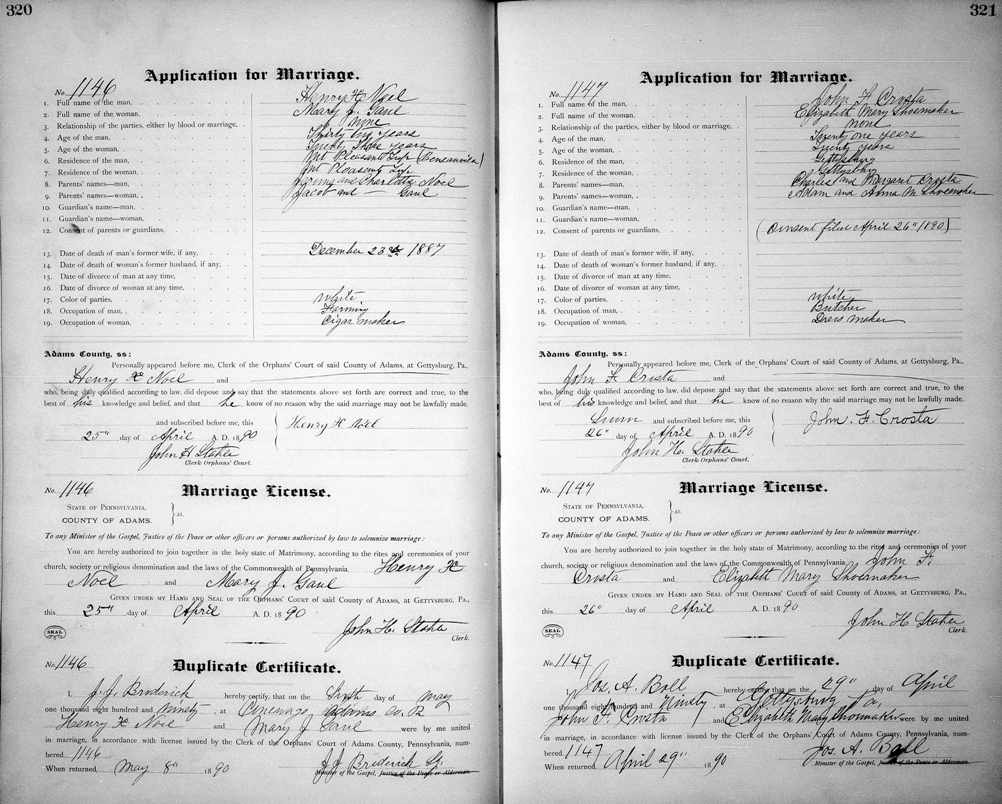 320
Application for Marriage.
No. 1146
1. Full name of the man, Henry K Noel
2. Full name of the woman, Mary J. Gaul
3. Relationship of the parties, either by blood or marriage, None
4. Age of the man, Thirty years
5. Age of the woman, Twenty three years
6. Residence of the man, Mt Pleasant Twp (Bonneauville)
7. Residence of the woman, Mt Pleasant Twp
8. Parents' names—man, and Charlotte Noel
9. Parents' names—woman, Jacob and — Gaul
10. Guardian's name—man,
11. Guardian's name—woman,
12. Consent of parents or guardians,
13. Date of death of man's former wife, if any, December 23rd 1887
14. Date of death of woman's former husband, if any,
15. Date of divorce of man at any time,
16. Date of divorce of woman at any time,
17. Color of parties, White
18. Occupation of man, Farming
19. Occupation of woman, Cigar maker
Adams County, ss:
Personally appeared before me, Clerk of the Orphans' Court of said County of Adams, at Gettysburg, Pa.,
Henry K Noel and
who, being duly qualified according to law, did depose and say that the statements above set forth are correct and true, to the
best of his knowledge and belief, and that he know of no reason why the said marriage may not be lawfully made.
and subscribed before me, this
Henry K Noel
25" day of April A. D. 1890
John H Stoher
Clerk Orphans' Court.
No. 1146 Marriage License.
State of Pennsylvania,
County of Adams. } ss.
To any Minister of the Gospel, Justice of the Peace or other officers or persons authorized by law to solemnize marriage:
You are hereby authorized to join together in the holy state of Matrimony, according to the rites and ceremonies of your
church, society or religious denomination and the laws of the Commonwealth of Pennsylvania, Henry K
Noel and Mary J. Gaul
Given under my Hand and Seal of the Orphans' Court of said County of Adams, at Gettysburg, Pa.,
this 25" day of April A. D. 1890
SEAL John H. Stoher
Clerk.
No. 1146 Duplicate Certificate.
I, J. J. Broderick hereby certify, that on the Sixth day of May
one thousand eight hundred and ninety, at Conewago Adams Co. Pa
Henry K Noel and Mary J Gaul were by me united
in marriage, in accordance with license issued by the Clerk of the Orphans' Court of Adams County, Pennsylvania, num-
bered 1146
J. J. Broderick
When returned, May 8" 1890 Minister of the Gospel, Justice of the Peace or Alderman.
321
Application for Marriage.
No. 1147
1. Full name of the man, John F. Crosta
2. Full name of the woman, Elizabeth Mary Shoemaker
3. Relationship of the parties, either by blood or marriage, none
4. Age of the man, Twenty one years
5. Age of the woman, Twenty years
6. Residence of the man, Gettysburg
7. Residence of the woman, Gettysburg
8. Parents' names—man, Charles and Margaret Crosta
9. Parents' names—woman, and Anna M Shoemaker
10. Guardian's name—man,
11. Guardian's name—woman,
12. Consent of parents or guardians, (Consent filed April 26" 1890)
13. Date of death of man's former wife, if any,
14. Date of death of woman's former husband, if any,
15. Date of divorce of man at any time,
16. Date of divorce of woman at any time,
17. Color of parties, White
18. Occupation of man, Butcher
19. Occupation of woman, Dress Maker
Adams County, ss:
Personally appeared before me, Clerk of the Orphans' Court of said County of Adams, at Gettysburg, Pa.,
John F Crosta and
who, being duly qualified according to law, did depose and say that the statements above set forth are correct and true, to the
best of his knowledge and belief, and that he know of no reason why the said marriage may not be lawfully made.
Sworn and subscribed before me, this
John. F. Crosta
26" day of April A. D. 1890
John H. Stoher
Clerk Orphans' Court.
No. 1147 Marriage License.
State of Pennsylvania,
County of Adams. } ss.
To any Minister of the Gospel, Justice of the Peace or other officers or persons authorized by law to solemnize marriage:
You are hereby authorized to join together in the holy state of Matrimony, according to the rites and ceremonies of your
church, society or religious denomination and the laws of the Commonwealth of Pennsylvania, John F.
Crosta and Elizabeth Mary Shoemaker
Given under my Hand and Seal of the Orphans' Court of said County of Adams, at Gettysburg, Pa.,
this 26" day of April A. D. 1890
SEAL John H Stoher
Clerk.
No. 1147 Duplicate Certificate.
I, Jos. A. Boll hereby certify that on the 29" day of April
one thousand eight hundred and Ninety, at Gettysburg Pa,
John F. Crosta and Elizabeth Mary Shoemaker were by me united
in marriage, in accordance with license issued by the Clerk of the Orphans' Court of Adams County, Pennsylvania, num-
bered 1147
Jos A. Boll
When returned, April 29" 1890 Minister of the Gospel, Justice of the Peace or Alderman.